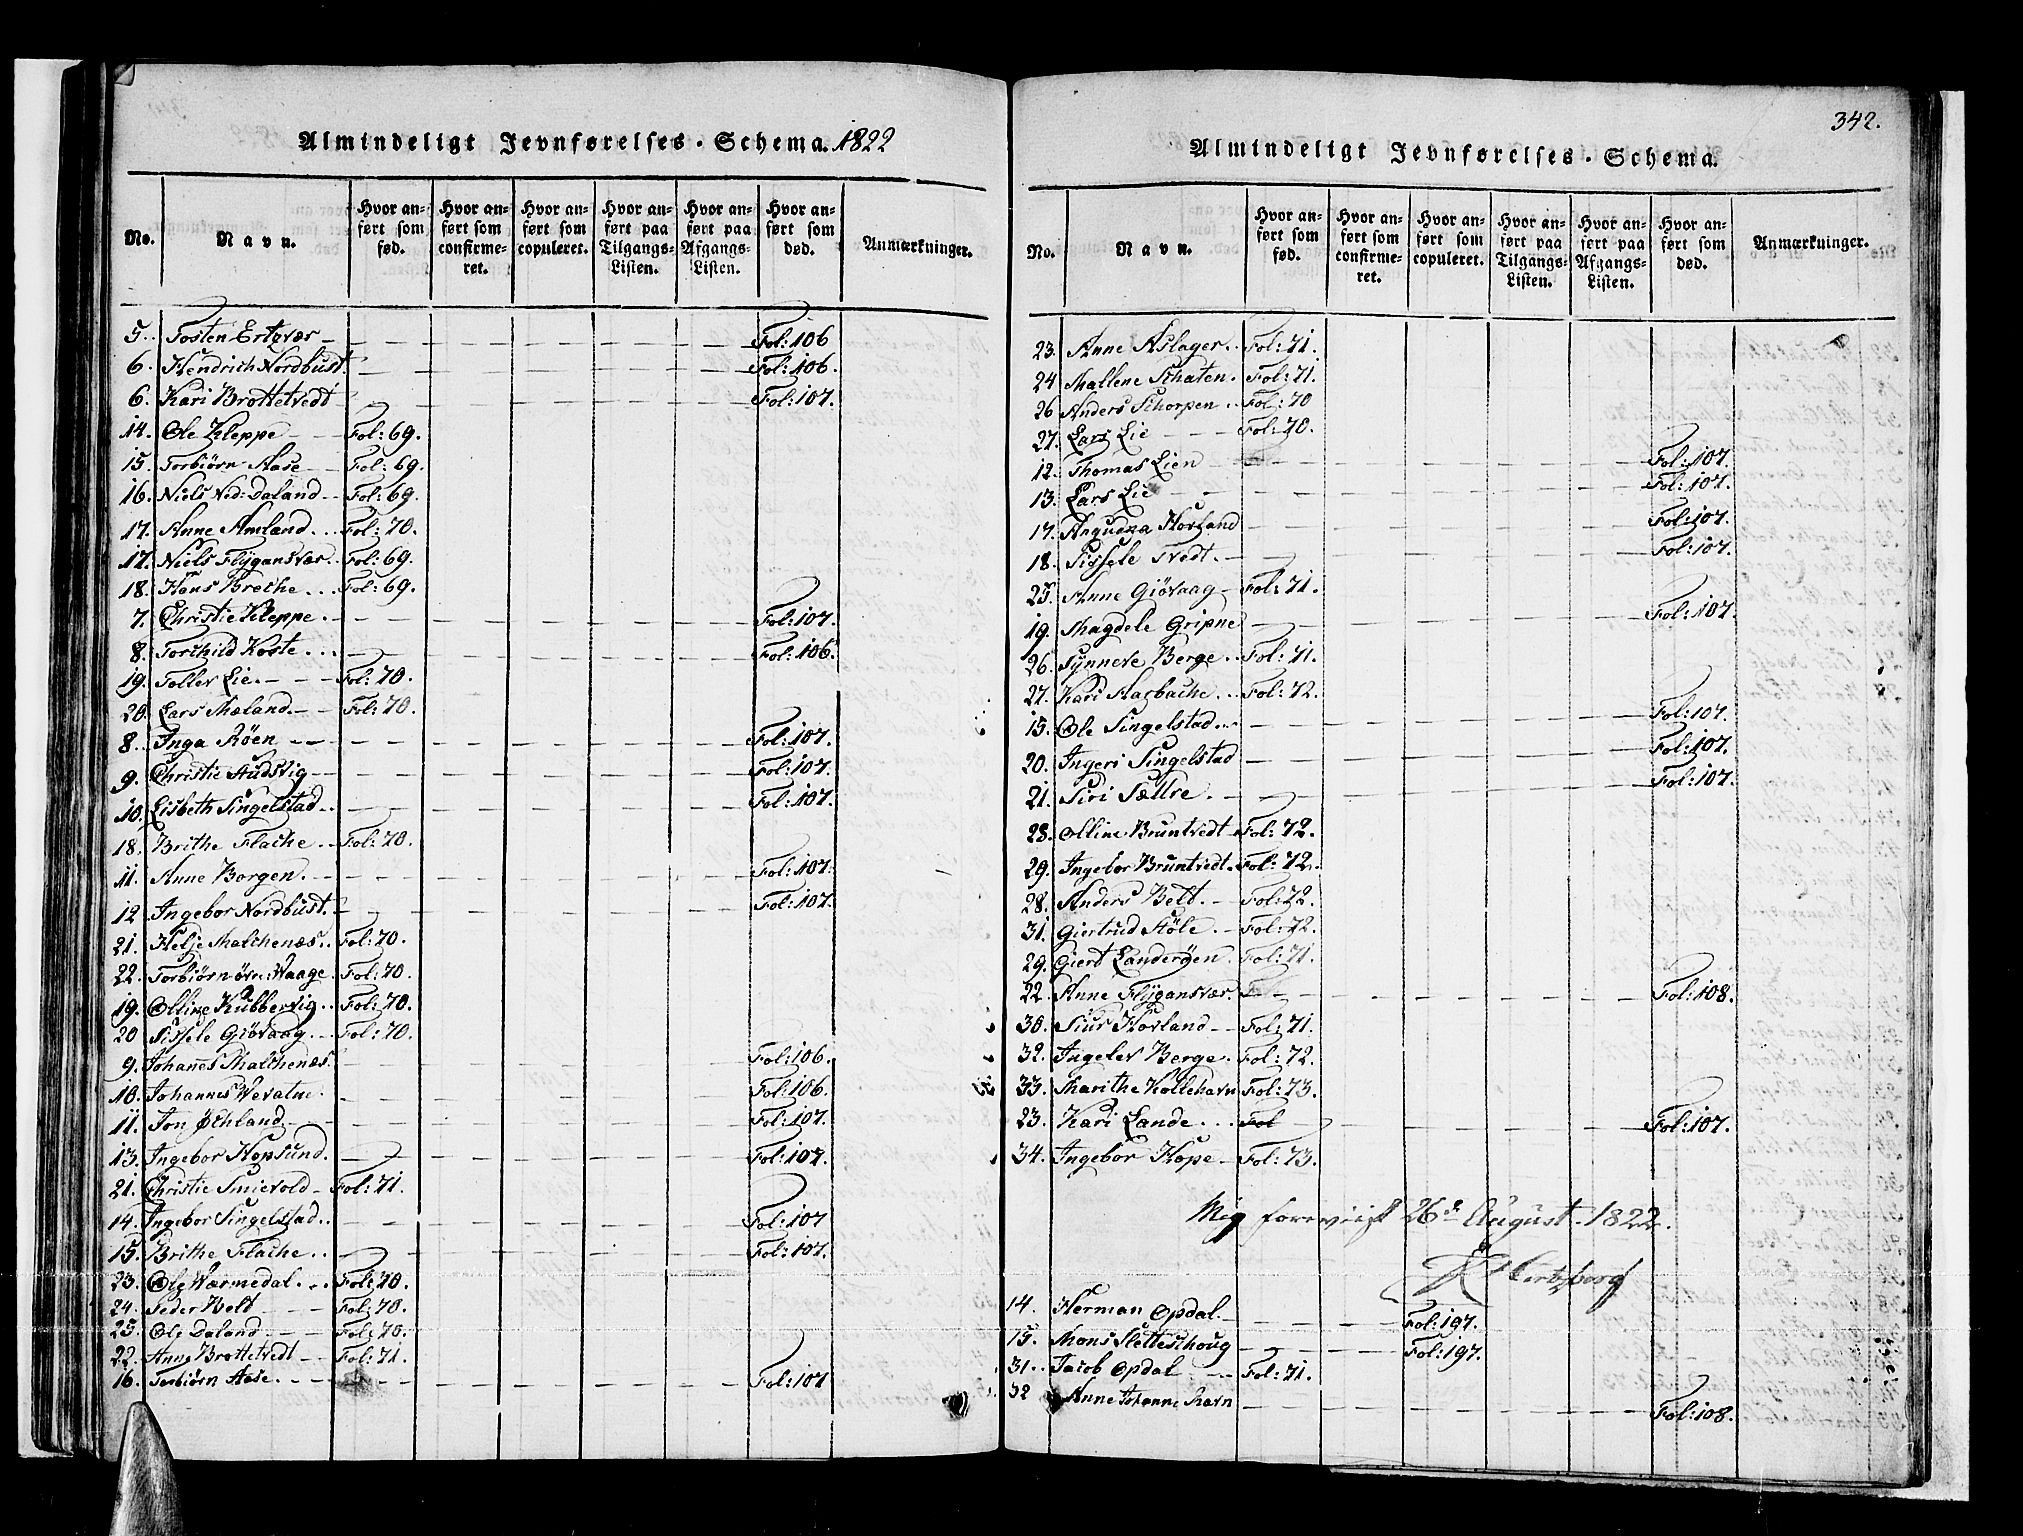 Almindeligt Jevnførelses-Schema. 1822
No. Navn. Hvor anført som fød. Hvor anført som confirmeret. Hvor anført som copuleret. Hvor anført paa Tilgangs-Listen. Hvor anført paa Afgangs-Listen. Hvor anført som død. Anmærkninger.
5. Tosten Ertzvær Fol: 106
6. Hendrich Nordbust Fol: 106.
6. Kari Brottetvedt Fol: 107.
14. Ole Kleppe Fol: 69.
15. Torbiørn Aase Fol: 69.
16. Niels Ned: Daland Fol: 69.
17. Anne Amland Fol: 70.
17. Niels Flygansvær Fol: 69.
18. Hans Brethe Fol: 69.
7. Christie Kleppe Fol: 107.
8. Torchild Koste Fol: 106.
19. Tollev Lie Fol: 70.
20. Lars Mæland Fol: 70.
8. Inga Røen Fol: 107.
9. Christie Hudsvig Fol: 107.
10. Lisbeth Singelstad Fol: 107.
18. Brithe Flache Fol: 70.
11. Anne Borgen Fol: 107.
12 Ingebor Nordbust Fol: 107.
21. Helje Malchenæs Fol: 70.
22. Torbiørn øvr: Waage Fol: 70.
19. Olline Kubbervig Fol: 70.
20 Sissele Giøvaag Fol: 70.
9. Johanes Malchenæs Fol: 106.
10. Johannes Wevatne Fol: 106.
11. Jon Øchland Fol: 107.
13. Ingebor Hopsund Fol: 107.
21. Christie Smievold Fol: 71.
14. Ingebor Singelstad Fol: 107
15. Brithe Flache Fol: 107.
23. Ole Wærmedal Fol: 70.
24. Peder Belt Fol: 70.
25. Ole Daland Fol: 70.
22. Anne Brottetvedt Fol: 71.
16. Torbiørn Aase Fol: 107
342.
Almindeligt Jevnførelses-Schema.
No. Navn. Hvor anført som fød. Hvor anført som confirmeret. Hvor anført som copuleret. Hvor anført paa Tilgangs-Listen. Hvor anført paa Afgangs-Listen. Hvor anført som død. Anmærkninger.
23. Anne Aslager Fol: 71.
24 Mallene Schaten Fol: 71.
26 Anders Schorpen Fol: 70
27. Lars Lie Fol: 70.
12. Thomas Lien Fol: 107.
13. Lars Lie Fol: 107.
17. Hovland Fol: 107.
18. Sissele Tvedt Fol: 107.
25. Anne Giøvaag Fol: 71.
19. Magdele Gripne Fol: 107.
26. Synneve Berge Fol: 71.
27. Kari Aarbache Fol: 72.
15. Ole Singelstad Fol: 107.
20. Ingeri Singelstad Fol: 107.
21. Siri Sættre Fol: 107.
28. Olline Bruntvedt Fol: 72.
29. Ingebor Bruntvedt Fol: 72.
28. Anders Belt Fol: 72.
31. Giertrud Støle Fol: 72.
29. Giert Landerøen Fol: 71.
22. Anne Flygansvær Fol: 108.
30. Siur Hovland Fol: 71.
32. Ingelev Berge Fol: 72.
33. Marithe Kollehavn Fol: 73.
23. Kari Lande Fol Fol: 107.
34. Ingebor Hope Fol: 73.
Mig foreviist 26de August 1822.
Hertzberg
14. Herman Opdal Fol: 197.
15. Mons Sletteschoug Fol: 197.
31. Jacob Opdal Fol: 71.
32 Anne Johanne Ravn Fol: 108.